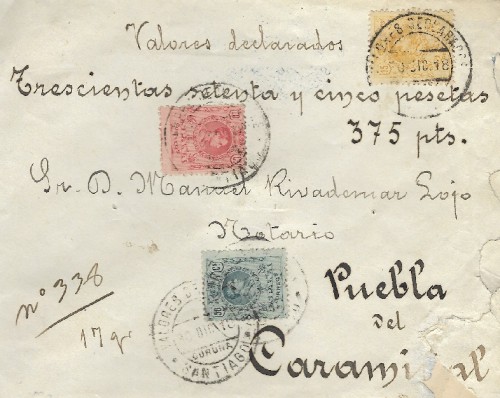 Valores declarados
Trescientas setenta y cinco pesetas
375 pts.
Sr. D. Manuel Rivademar Lojo
Notario
Puebla
del
Caramiñal
nº 338
17 gr
VALORES DECLARADOS
VALORES DE
CORUÑA
SANTIAGO